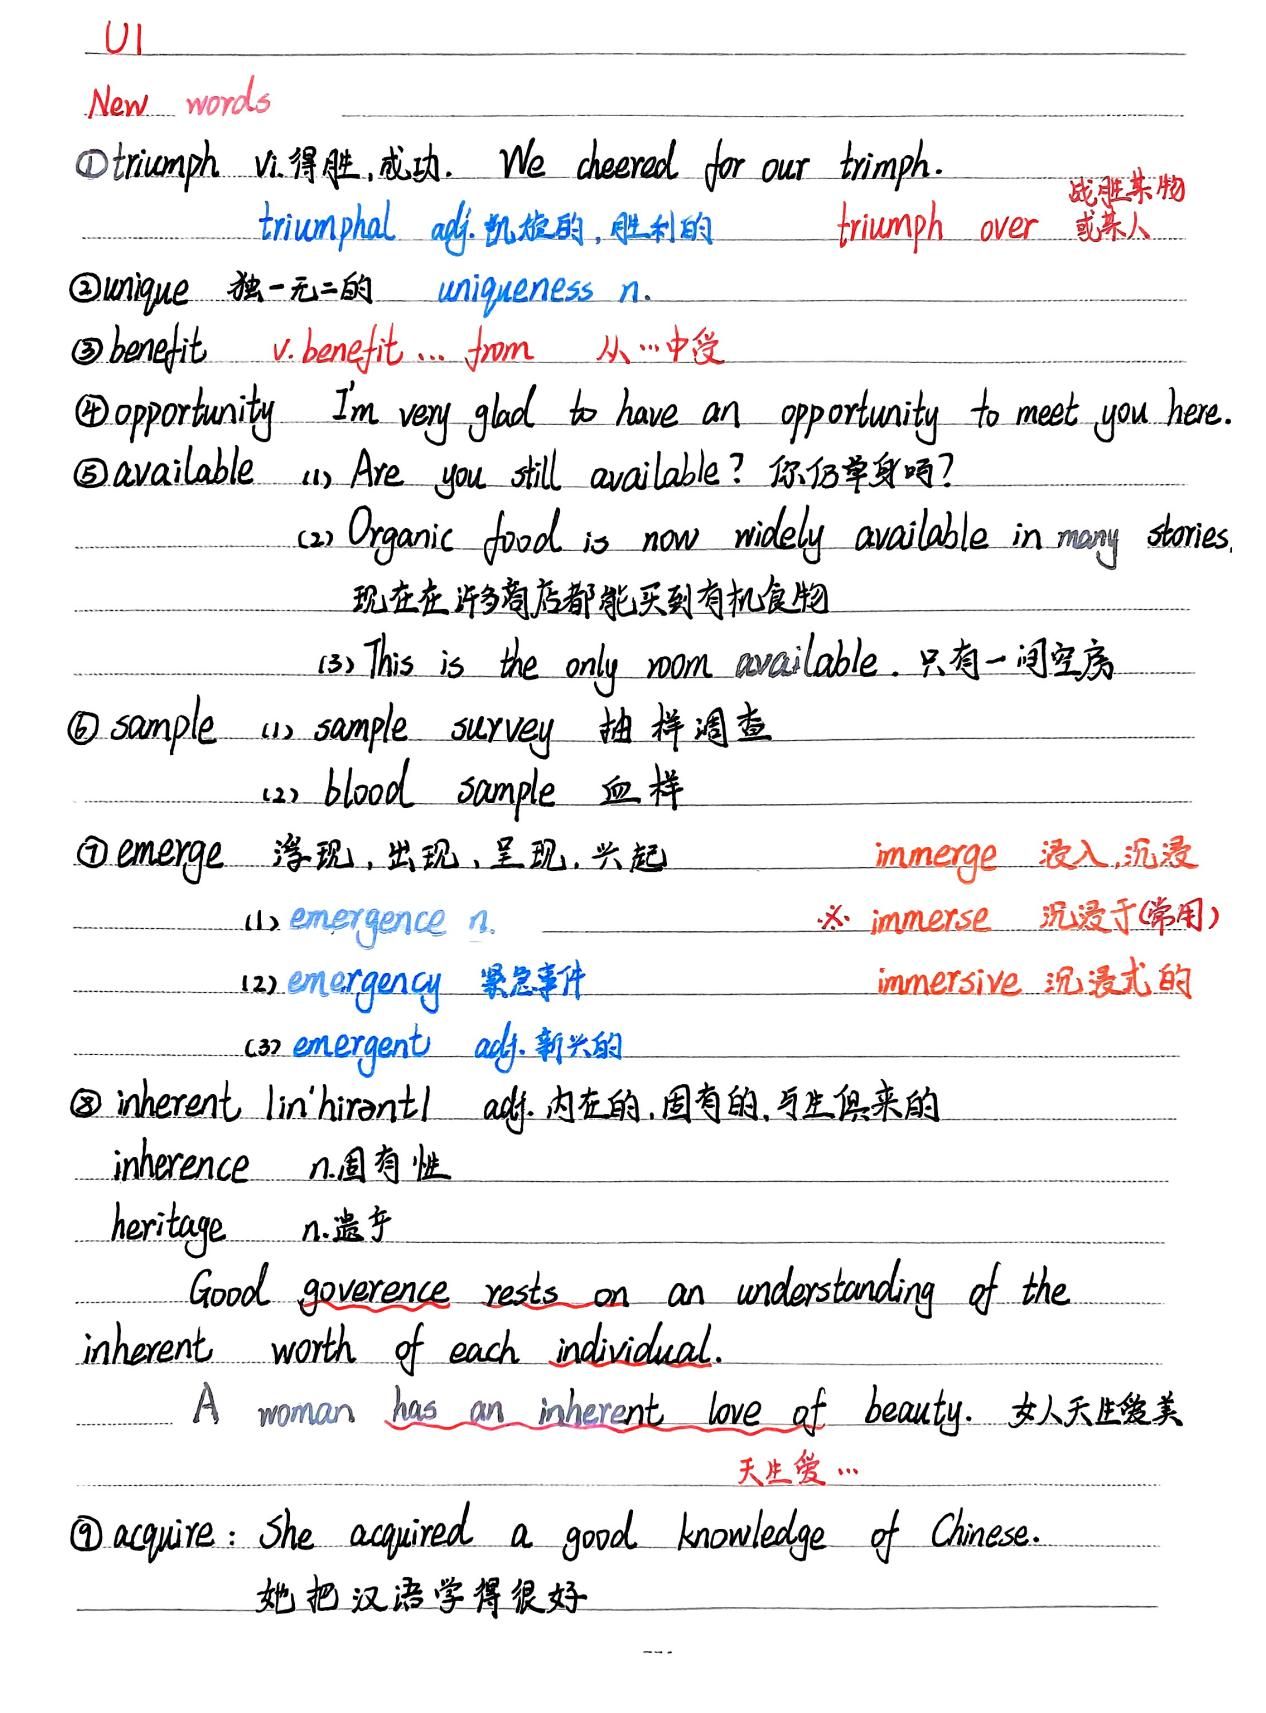 U1
New words
①triumph vi.得胜,成功. We cheered for our trimph.
triumphal adj.凯旋的,胜利的 triumph over 战胜某物或某人
②unique 独一无二的 uniqueness n.
③benefit v.benefit … from 从…中受
④opportunity I'm very glad to have an opportunity to meet you here.
⑤available (1) Are you still available? 你仍单身吗?
(2) Organic food is now widely available in many stories.
现在在许多商店都能买到有机食物
(3) This is the only room available. 只有一间空房
⑥sample (1) sample survey 抽样调查
(2) blood sample 血样
⑦emerge 浮现,出现、呈现.兴起 immerge 浸入,沉浸
(1) emergence n. ※ immerse 沉浸于(常用)
(2) emergency 紧急事件 immersive 沉浸式的
(3) emergent adj.新兴的
⑧inherent |in'hirənt| adj.内在的.固有的,与生俱来的
inherence n.固有性
heritage n.遗产
Good goverence rests on an understanding of the
inherent worth of each individual.
A woman has an inherent love of beauty. 女人天生爱美
天生爱…
⑨acquire: She acquired a good knowledge of Chinese.
她把汉语学得很好